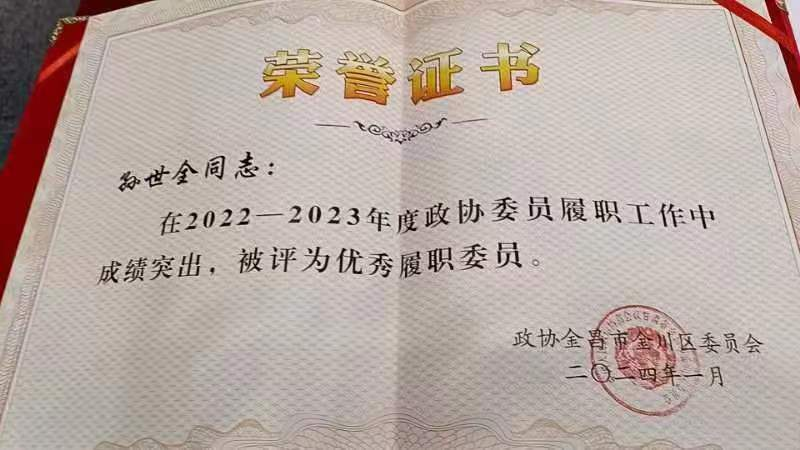 荣誉证书
孙世全同志：
在2022—2023年度政协委员履职工作中
成绩突出，被评为优秀履职委员。
政协金昌市金川区委员会
二〇二四年一月